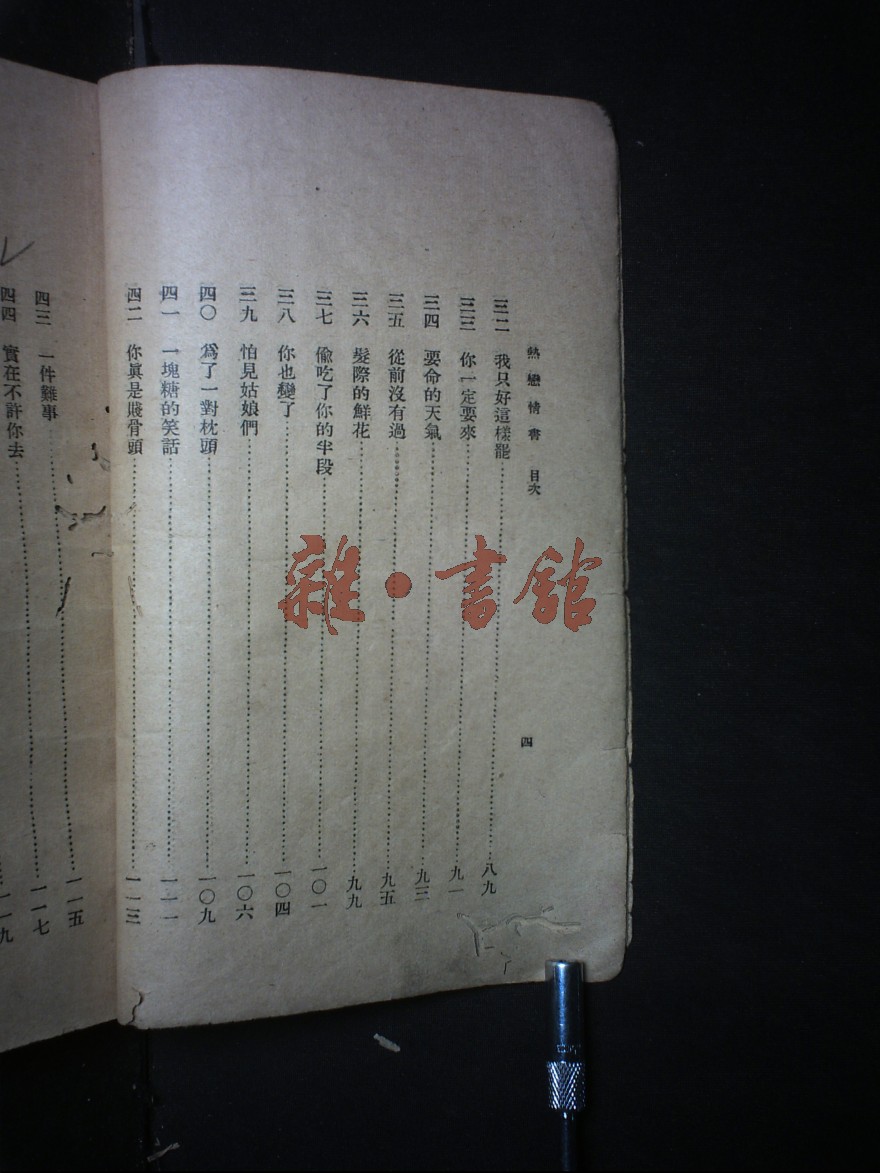 熱戀情書 目次
四
三二 我只好這樣罷……八九
三三 你一定要來……九一
三四 要命的天氣……九三
三五 從前沒有過……九五
三六 髮際的鮮花……九九
三七 偸吃了你的半段……一〇一
三八 你也變了……一〇四
三九 怕見姑娘們……一〇六
四〇 爲了一對枕頭……一〇九
四一 一塊糖的笑話……一一一
四二 你眞是賤骨頭……一一三
四三 一件難事……一一五
四四 實在不許你去……一一七
一一九
雜・書館